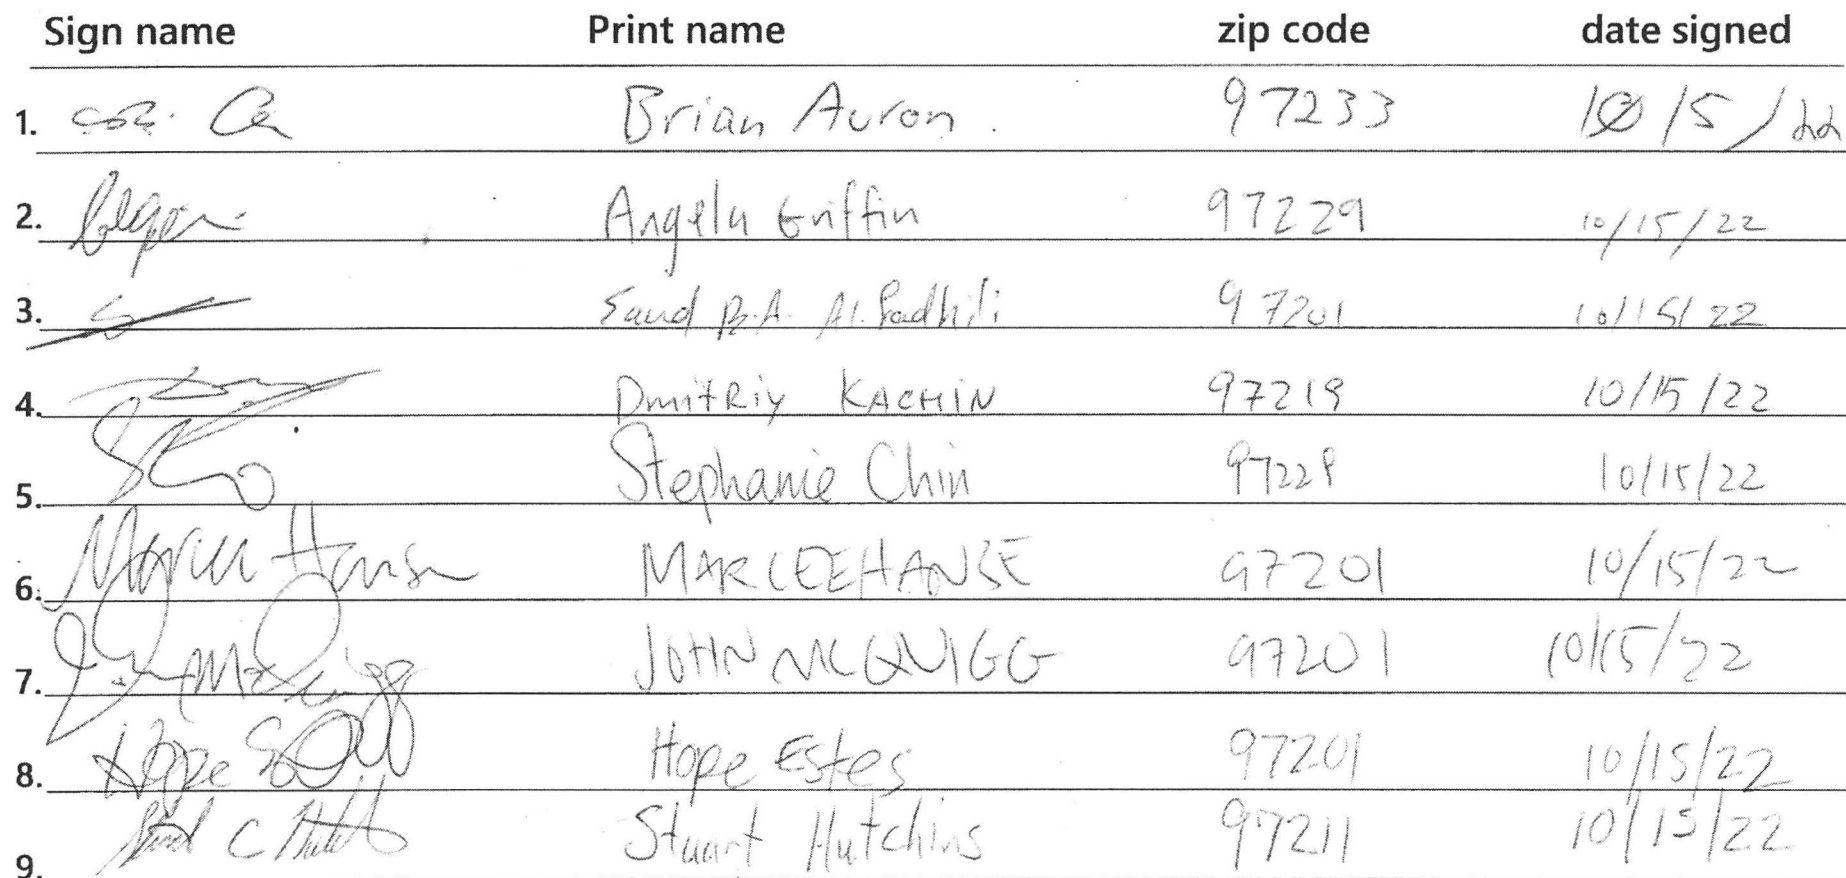 Sign name Print name zip code date signed
1. Brian Auron. 97233 10/5/22
2. Angela Griffin 97229 10/15/22
3. Saud B.A. Al. Fadhili 97201 10/15/22
4. Dmitriy KACHIN 97219 10/15/22
5. Stephanie Chin 97229 10/15/22
6. MARCEEHANSE 97201 10/15/22
7. John McQuigg JOHN MCQUIGG 97201 10/15/22
8. Hope Hope Estes 97201 10/15/22
9. Stuart Hutchins 97211 10/15/22